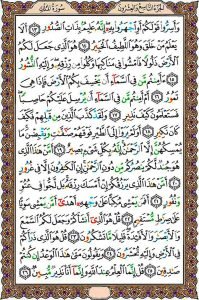 الجزء التاسع والعشرون سورة الملك
وَأَسِرُّوا۟ قَوْلَكُمْ أَوِ ٱجْهَرُوا۟ بِهِۦٓ إِنَّهُۥ عَلِيمٌۢ بِذَاتِ ٱلصُّدُورِ ١٣ أَلَا
يَعْلَمُ مَنْ خَلَقَ وَهُوَ ٱللَّطِيفُ ٱلْخَبِيرُ ١٤ هُوَ ٱلَّذِى جَعَلَ لَكُمُ
ٱلْأَرْضَ ذَلُولًا فَٱمْشُوا۟ فِى مَنَاكِبِهَا وَكُلُوا۟ مِن رِّزْقِهِۦ وَإِلَيْهِ ٱلنُّشُورُ
١٥ ءَأَمِنتُم مَّن فِى ٱلسَّمَآءِ أَن يَخْسِفَ بِكُمُ ٱلْأَرْضَ فَإِذَا هِىَ
تَمُورُ ١٦ أَمْ أَمِنتُم مَّن فِى ٱلسَّمَآءِ أَن يُرْسِلَ عَلَيْكُمْ حَاصِبًا
فَسَتَعْلَمُونَ كَيْفَ نَذِيرِ ١٧ وَلَقَدْ كَذَّبَ ٱلَّذِينَ مِن قَبْلِهِمْ فَكَيْفَ
كَانَ نَكِيرِ ١٨ أَوَلَمْ يَرَوْا۟ إِلَى ٱلطَّيْرِ فَوْقَهُمْ صَٰٓفَّٰتٍ وَيَقْبِضْنَ مَا
يُمْسِكُهُنَّ إِلَّا ٱلرَّحْمَٰنُ إِنَّهُۥ بِكُلِّ شَىْءٍۭ بَصِيرٌ ١٩ أَمَّنْ هَٰذَا ٱلَّذِى
هُوَ جُندٌ لَّكُمْ يَنصُرُكُم مِّن دُونِ ٱلرَّحْمَٰنِ إِنِ ٱلْكَٰفِرُونَ إِلَّا فِى غُرُورٍ
٢٠ أَمَّنْ هَٰذَا ٱلَّذِى يَرْزُقُكُمْ إِنْ أَمْسَكَ رِزْقَهُۥ بَل لَّجُّوا۟ فِى عُتُوٍّ
وَنُفُورٍ ٢١ أَفَمَن يَمْشِى مُكِبًّا عَلَىٰ وَجْهِهِۦٓ أَهْدَىٰٓ أَمَّن يَمْشِى سَوِيًّا
عَلَىٰ صِرَٰطٍ مُّسْتَقِيمٍ ٢٢ قُلْ هُوَ ٱلَّذِىٓ أَنشَأَكُمْ وَجَعَلَ لَكُمُ ٱلسَّمْعَ
وَٱلْأَبْصَٰرَ وَٱلْأَفْـِٔدَةَ قَلِيلًا مَّا تَشْكُرُونَ ٢٣ قُلْ هُوَ ٱلَّذِى ذَرَأَكُمْ
فِى ٱلْأَرْضِ وَإِلَيْهِ تُحْشَرُونَ ٢٤ وَيَقُولُونَ مَتَىٰ هَٰذَا ٱلْوَعْدُ إِن كُنتُمْ
صَٰدِقِينَ ٢٥ قُلْ إِنَّمَا ٱلْعِلْمُ عِندَ ٱللَّهِ وَإِنَّمَآ أَنَا۠ نَذِيرٌ مُّبِينٌ ٢٦